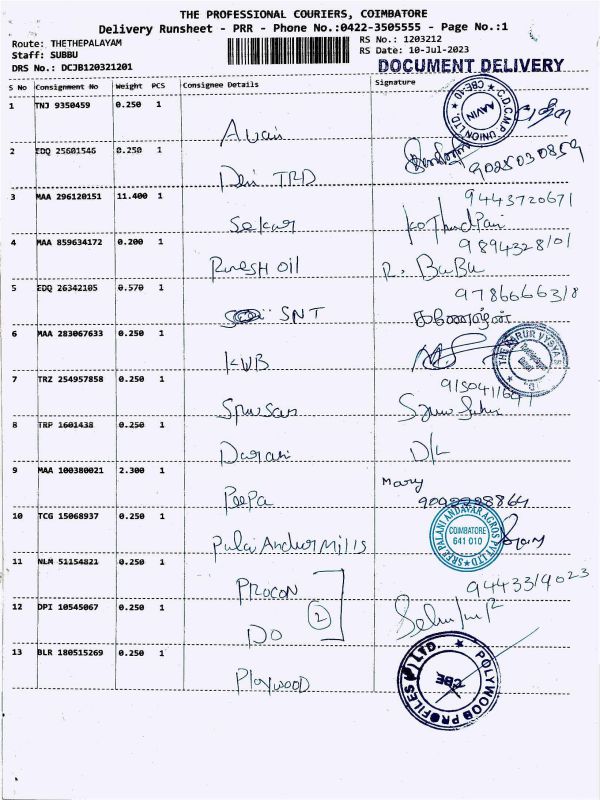 THE PROFESSIONAL COURIERS, COIMBATORE
Delivery Runsheet - PRR - Phone No.:0422-3505555 - Page No.:1
Route: THETHEPALAYAM
RS No.: 1203212
Staff: SUBBU
RS Date: 10-Jul-2023
DRS No.: DCJB120321201
DOCUMENT DELIVERY
S No Consignment No Weight PCS Consignee Details Signature
1 TNJ 9350459 0.250 1
C.D.C.M.P. UNION LTD. AAVIN CBE-10
2 EDQ 25601546 0.250 1
Devi TRD 9025030859
3 MAA 296120151 11.400 1
9443720671
Sekar
4 MAA 859634172 0.200 1
9894328101
Rinesh Oil R. BaBu
5 EDQ 26342105 0.570 1
9786666318
SNT கணேஷ்
6 MAA 283067633 0.250 1
THE KARUR VYSYA
KVB
7 TRZ 254957858 0.250 1
8 TRP 1601438 0.250 1
D/L
9 MAA 100380021 2.300 1
Mary
Peepa
10 TCG 15068937 0.250 1
SREE PALANI ANDAVAR AGROS (P) LTD COIMBATORE 641 010
Palai Andur Mills
11 NLM 51154821 0.250 1
PROCON 9443319023
12 DPI 10545067 0.250 1
2
DO
13 BLR 180515269 0.250 1
POLYWOOD PROFILES (P) LTD. CBE
Playwood